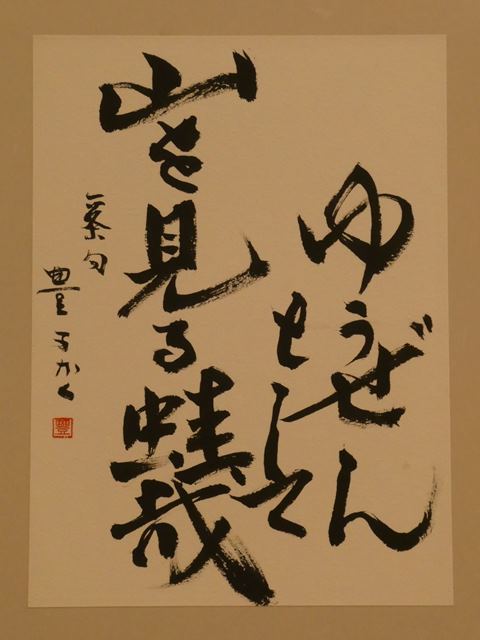 ゆうぜん
として
山を見る蛙哉
一茶句
豊子かく